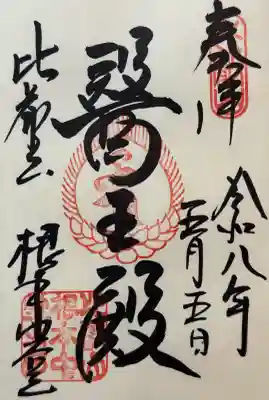 奉拝
令和八年
五月五日
醫王殿
比叡山
根本中堂